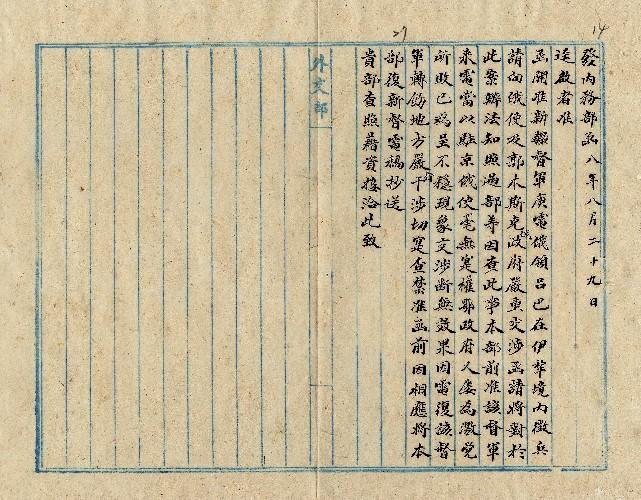 14
27
發內務部函八年八月二十九日
逕啟者准
函開准新疆督軍庚電俄領呂巴在伊犂境內徵兵
請向俄使及鄂木斯克政府嚴重交涉函請將對於
此案辦法知照過部等因查此事本部前准該督軍
來電當以駐京俄使毫無寔權鄂政府人屢為激党
所敗已呈不穩現象交涉斷無效果因電復該督
軍轉飭地方嚴行干涉切寔查禁准函前因相應將本
部復新督電稿抄送
貴部查照藉資接洽此致
外交部